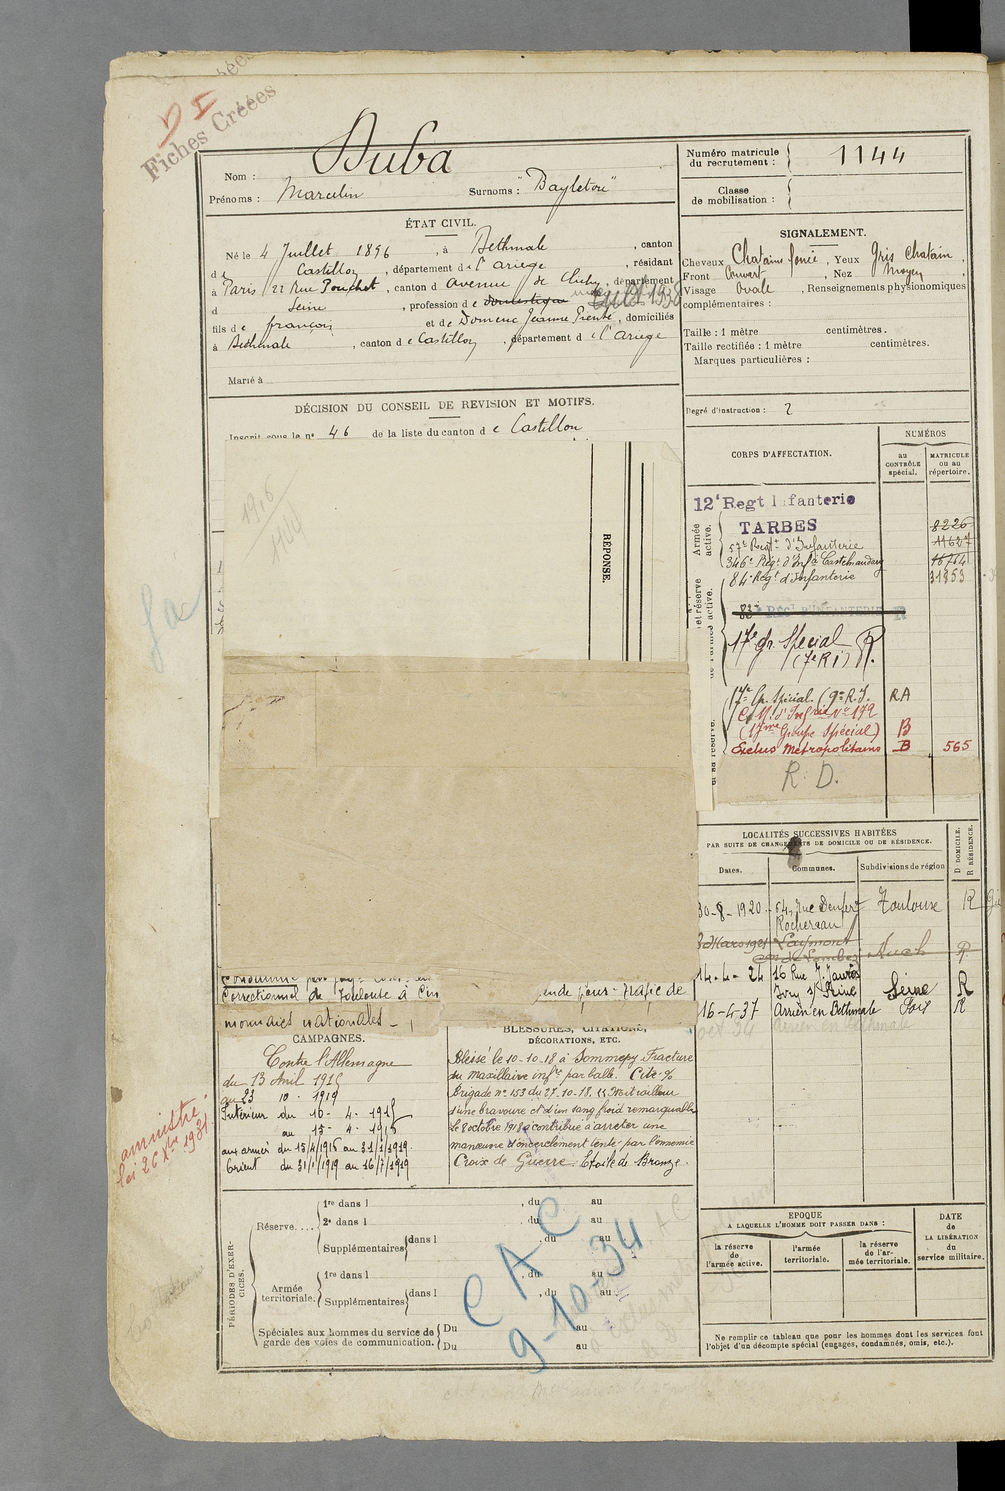 D I
Fiches Créées
Nom : Duba
Prénoms : Marcelin Surnoms : "Bayletou"
Numéro matricule du recrutement : 1144
Classe de mobilisation :
ÉTAT CIVIL.
Né le 4 Juillet 1896, à Bethmale, canton
de Castillon, département de l'Ariege, résidant
à Paris 22 Rue Pouchet, canton d avenue de Clichy, département
d Seine, profession de domestique
fils de françois et de Domenc Jeanne Prenté, domiciliés
à Bethmale, canton de Castillon, département de l'Ariege
Marié à
DÉCISION DU CONSEIL DE REVISION ET MOTIFS.
Inscrit sous le n° 46 de la liste du canton de Castillon
SIGNALEMENT.
Cheveux Chatains foncé, Yeux Gris Chatain,
Front Couvert, Nez Moyen,
Visage Ovale, Renseignements physionomiques
complémentaires :
Taille : 1 mètre centimètres.
Taille rectifiée : 1 mètre centimètres.
Marques particulières :
Degré d'instruction : 2
CORPS D'AFFECTATION.
NUMÉROS
au CONTRÔLE spécial.
MATRICULE ou au répertoire.
1916
1144
RÉPONSE.
Armée active.
12e Regt Infanterie
TARBES 8226
57e Regt d'Infanterie 11627
346e Regt d'Infie Castelnaudary 16764
84e Regt d'Infanterie 31853
83e REGt D'INFANTERIE R
17e gr. Spécial R
(7e RI)
17e Gp. Spécial (9e R.I. R.A
C.M. d'Infrie no 179
(17me Groupe Spécial) B
Exclus Métropolitains B 565
R. D.
LOCALITÉS SUCCESSIVES HABITÉES
PAR SUITE DE CHANGEMENTS DE DOMICILE OU DE RÉSIDENCE.
Dates. Communes. Subdivisions de région D DOMICILE. R RÉSIDENCE.
30-8-1920 54, Rue Denfert Rochereau Toulouse R
3 Mars 1921 Laymont con de Lombez Auch R
14-4-24 16 Rue J. Jaurès Ivry s/ Seine Seine R
16-4-37 Arrien en Bethmale Foix R
Correctionnel de Toulouse à
pour trafic de
monnaies nationales
CAMPAGNES.
Contre l'Allemagne
du 13 Avril 1915
au 23 10 1919
Intérieur du 16- 4- 1915
au 15- 4- 1916
aux armées du 15/4/1916 au 31/1/1919
Orient du 31/1/1919 au 16/7/1919
BLESSURES, CITATIONS, DÉCORATIONS, ETC.
Blessé le 10-10-18 à Sommepy Fracture
du maxillaire infr par balle. Cité %
Brigade n° 153 du 27-10-18, "Mitrailleur
d'une bravoure et d'un sang froid remarquable
le 8 octobre 1918 a contribué à arrêter une
manœuvre d'encerclement tenté par l'ennemie
Croix de Guerre. Etoile de Bronze.
amnistie.
loi 26 Xbre 1931
PÉRIODES D'EXERCICES.
Réserve....
1re dans l , du au
2e dans l , du au
Supplémentaires dans l , du au
Armée territoriale.
1re dans l , du au
Supplémentaires dans l , du au
Spéciales aux hommes du service de garde des voies de communication.
Du au
Du au
C A C
9-10-34
EPOQUE
A LAQUELLE L'HOMME DOIT PASSER DANS :
la réserve de l'armée active.
l'armée territoriale.
la réserve de l'armée territoriale.
DATE de LA LIBÉRATION du service militaire.
Ne remplir ce tableau que pour les hommes dont les services font
l'objet d'un décompte spécial (engagés, condamnés, omis, etc.).